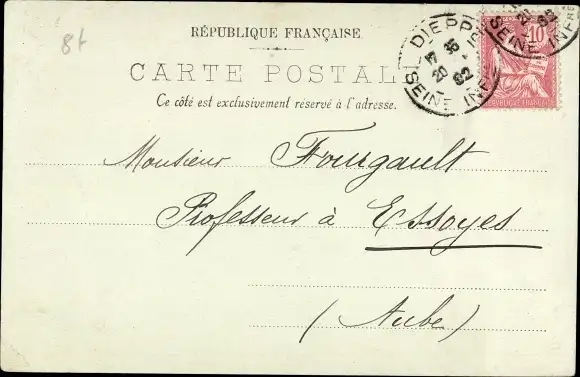 8f
RÉPUBLIQUE FRANÇAISE
CARTE POSTALE
Ce côté est exclusivement réservé à l'adresse.
DIEPPE
17 35
20
02
SEINE INFRE
10
RÉPUBLIQUE FRANÇAISE
Monsieur Fourgault
Professeur à Essoyes
(Aube)